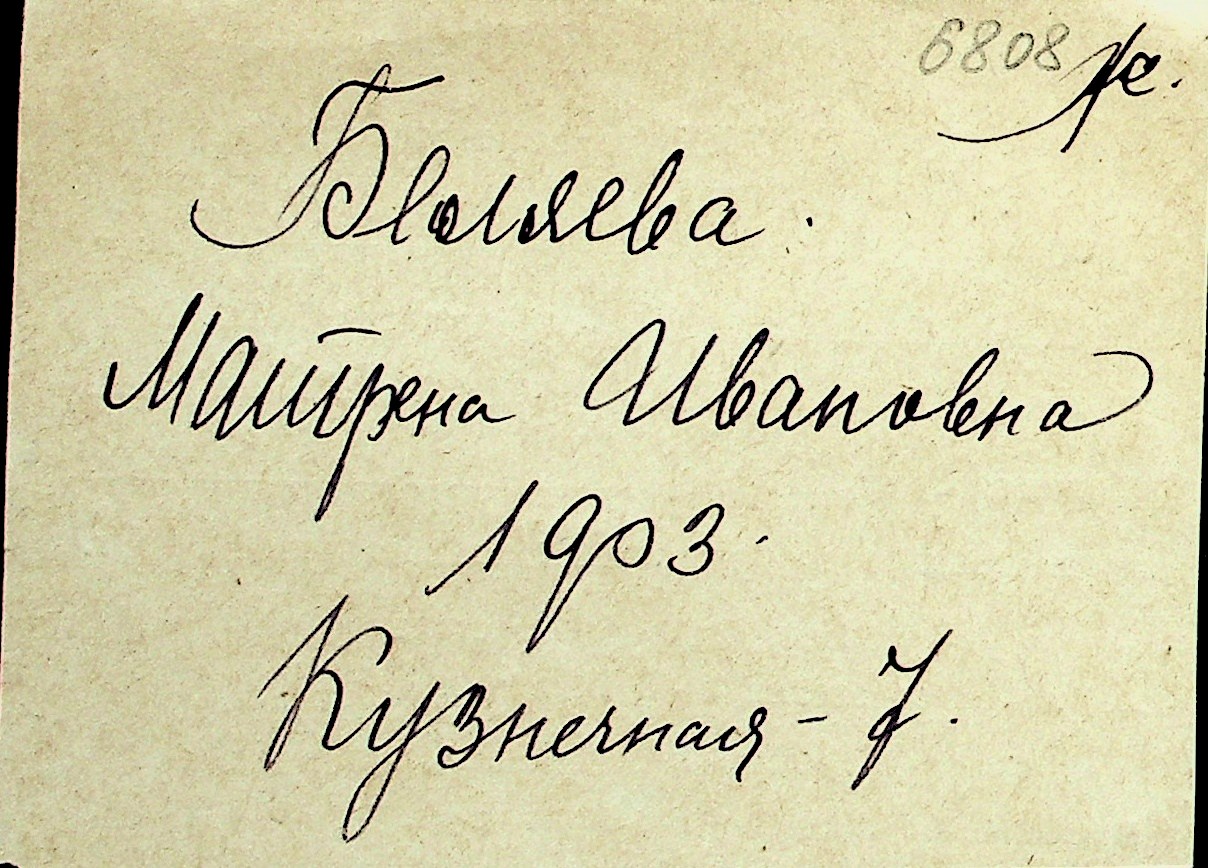 6808
Беляева.
Матрена Ивановна
1903.
Кузнечная - 7.